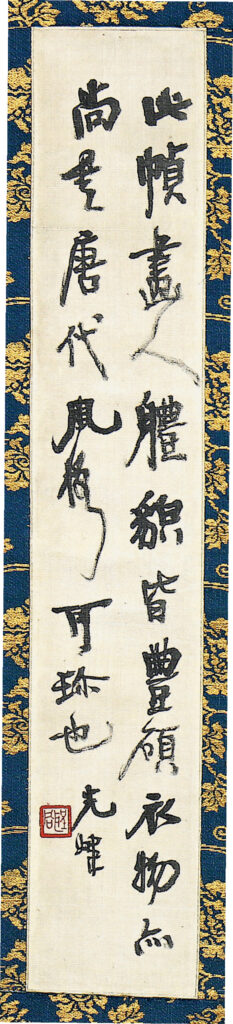 此幀畫人體貌皆豐碩衣物亦
尚唐代風格可珍也
光煒